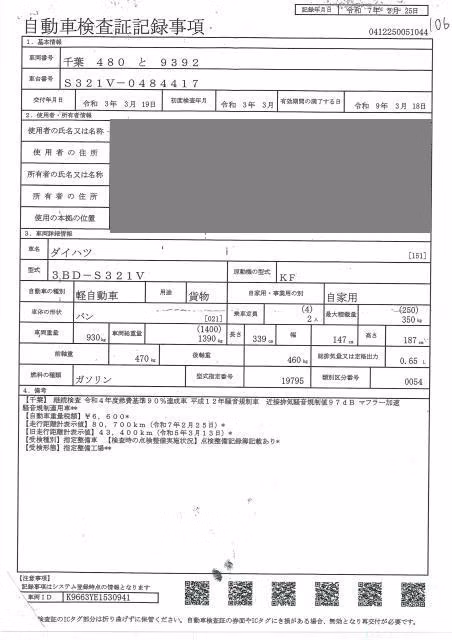 記録年月日 令和 7年 2月 25日
自動車検査証記録事項
0412250051044
106
1．基本情報
車両番号 千葉 480 と 9392
車台番号 S321V-0484417
交付年月日 令和 3年 3月 19日 初度検査年月 令和 3年 3月 有効期間の満了する日 令和 9年 3月 18日
2．使用者・所有者情報
使用者の氏名又は名称
使用者の住所
所有者の氏名又は名称
所有者の住所
使用の本拠の位置
3．車両詳細情報
車名 ダイハツ [151]
型式 3BD-S321V 原動機の型式 KF
自動車の種別 軽自動車 用途 貨物 自家用・事業用の別 自家用
車体の形状 バン [021] 乗車定員 (4) 2人 最大積載量 (250) 350kg
車両重量 930kg 車両総重量 (1400) 1390kg 長さ 339cm 幅 147cm 高さ 187cm
前軸重 470kg 後軸重 460kg 総排気量又は定格出力 0.65 L
燃料の種類 ガソリン 型式指定番号 19795 類別区分番号 0054
4．備考
【千葉】 継続検査 令和4年度燃費基準90％達成車 平成12年騒音規制車 近接排気騒音規制値97dB マフラー加速
騒音規制適用車**
【自動車重量税額】￥6，600*
【走行距離計表示値】80，700km（令和7年2月25日）*
【旧走行距離計表示値】43，400km（令和5年3月13日）*
【受検種別】指定整備車 【検査時の点検整備実施状況】点検整備記録簿記載あり*
【受検形態】指定整備工場**
【注意事項】
記録事項はシステム登録時点の情報となります
車両ID K9663YE1530941
検査証のICタグ部分は折り曲げずに保管ください。自動車検査証の券面やICタグにき損がある場合、無効となり再交付が必要です。